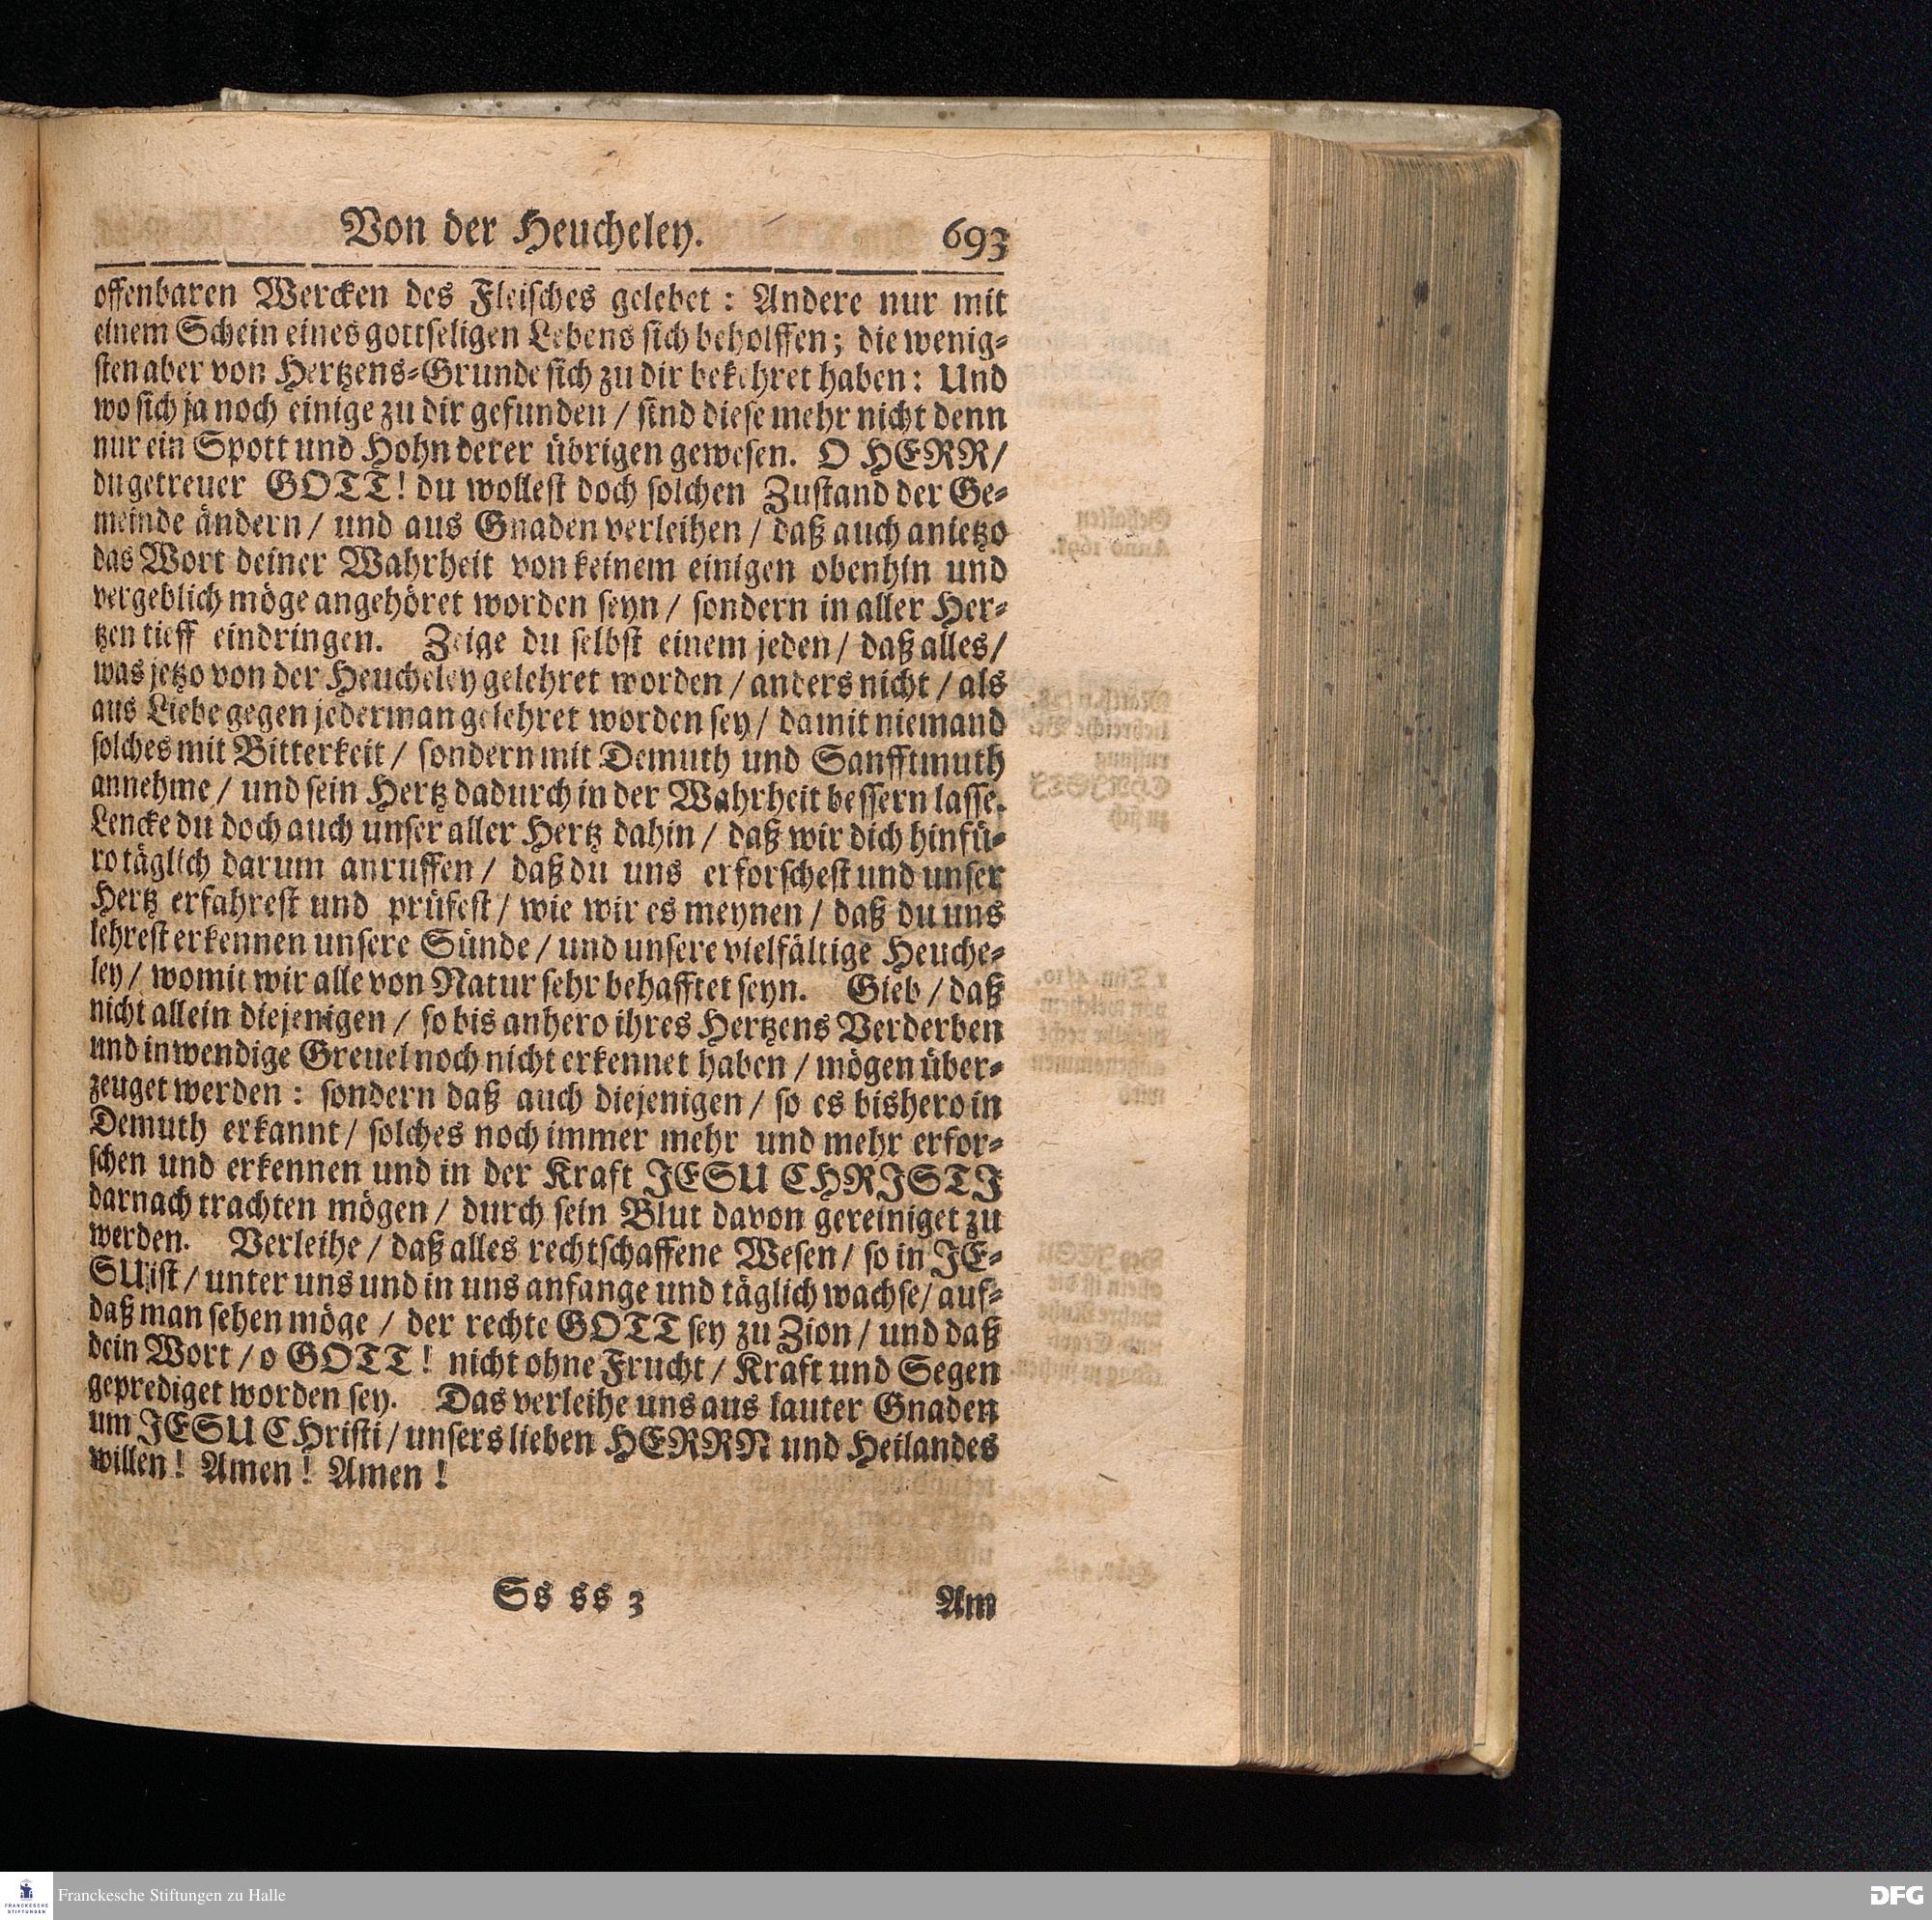 Von der Heucheley. 693
offenbaren Wercken des Fleisches gelebet: Andere nur mit
einem Schein eines gottseligen Lebens sich beholffen; die wenig-
sten aber von Hertzens-Grunde sich zu dir bekehret haben: Und
wo sich ja noch einige zu dir gefunden / sind diese mehr nicht denn
nur ein Spott und Hohn derer übrigen gewesen. O HERR/
du getreuer GOTT! du wollest doch solchen Zustand der Ge-
meinde ändern / und aus Gnaden verleihen / daß auch anietzo
das Wort deiner Wahrheit von keinem einigen obenhin und
vergeblich möge angehöret worden seyn / sondern in aller Her-
tzen tieff eindringen. Zeige du selbst einem jeden / daß alles/
was jetzo von der Heucheley gelehret worden / anders nicht / als
aus Liebe gegen jederman gelehret worden sey / damit niemand
solches mit Bitterkeit / sondern mit Demuth und Sanfftmuth
annehme / und sein Hertz dadurch in der Wahrheit bessern lasse.
Lencke du doch auch unser aller Hertz dahin / daß wir dich hinfü-
ro täglich darum anruffen / daß du uns erforschest und unser
Hertz erfahrest und prüfest / wie wir es meynen / daß du uns
lehrest erkennen unsere Sünde / und unsere vielfältige Heuche-
ley / womit wir alle von Natur sehr behafftet seyn. Gieb / daß
nicht allein diejenigen / so bis anhero ihres Hertzens Verderben
und inwendige Greuel noch nicht erkennet haben / mögen über-
zeuget werden: sondern daß auch diejenigen / so es bishero in
Demuth erkannt / solches noch immer mehr und mehr erfor-
schen und erkennen und in der Kraft JESU CHRISTI
darnach trachten mögen / durch sein Blut davon gereiniget zu
werden. Verleihe / daß alles rechtschaffene Wesen / so in JE-
SU ist / unter uns und in uns anfange und täglich wachse / auf-
daß man sehen möge / der rechte GOTT sey zu Zion / und daß
dein Wort / o GOTT! nicht ohne Frucht / Kraft und Segen
geprediget worden sey. Das verleihe uns aus lauter Gnaden
um JESU CHristi / unsers lieben HERRN und Heilandes
willen! Amen! Amen!
Ss ss 3 Am
Franckesche Stiftungen zu Halle
FRANCKESCHE
STIFTUNGEN
DFG